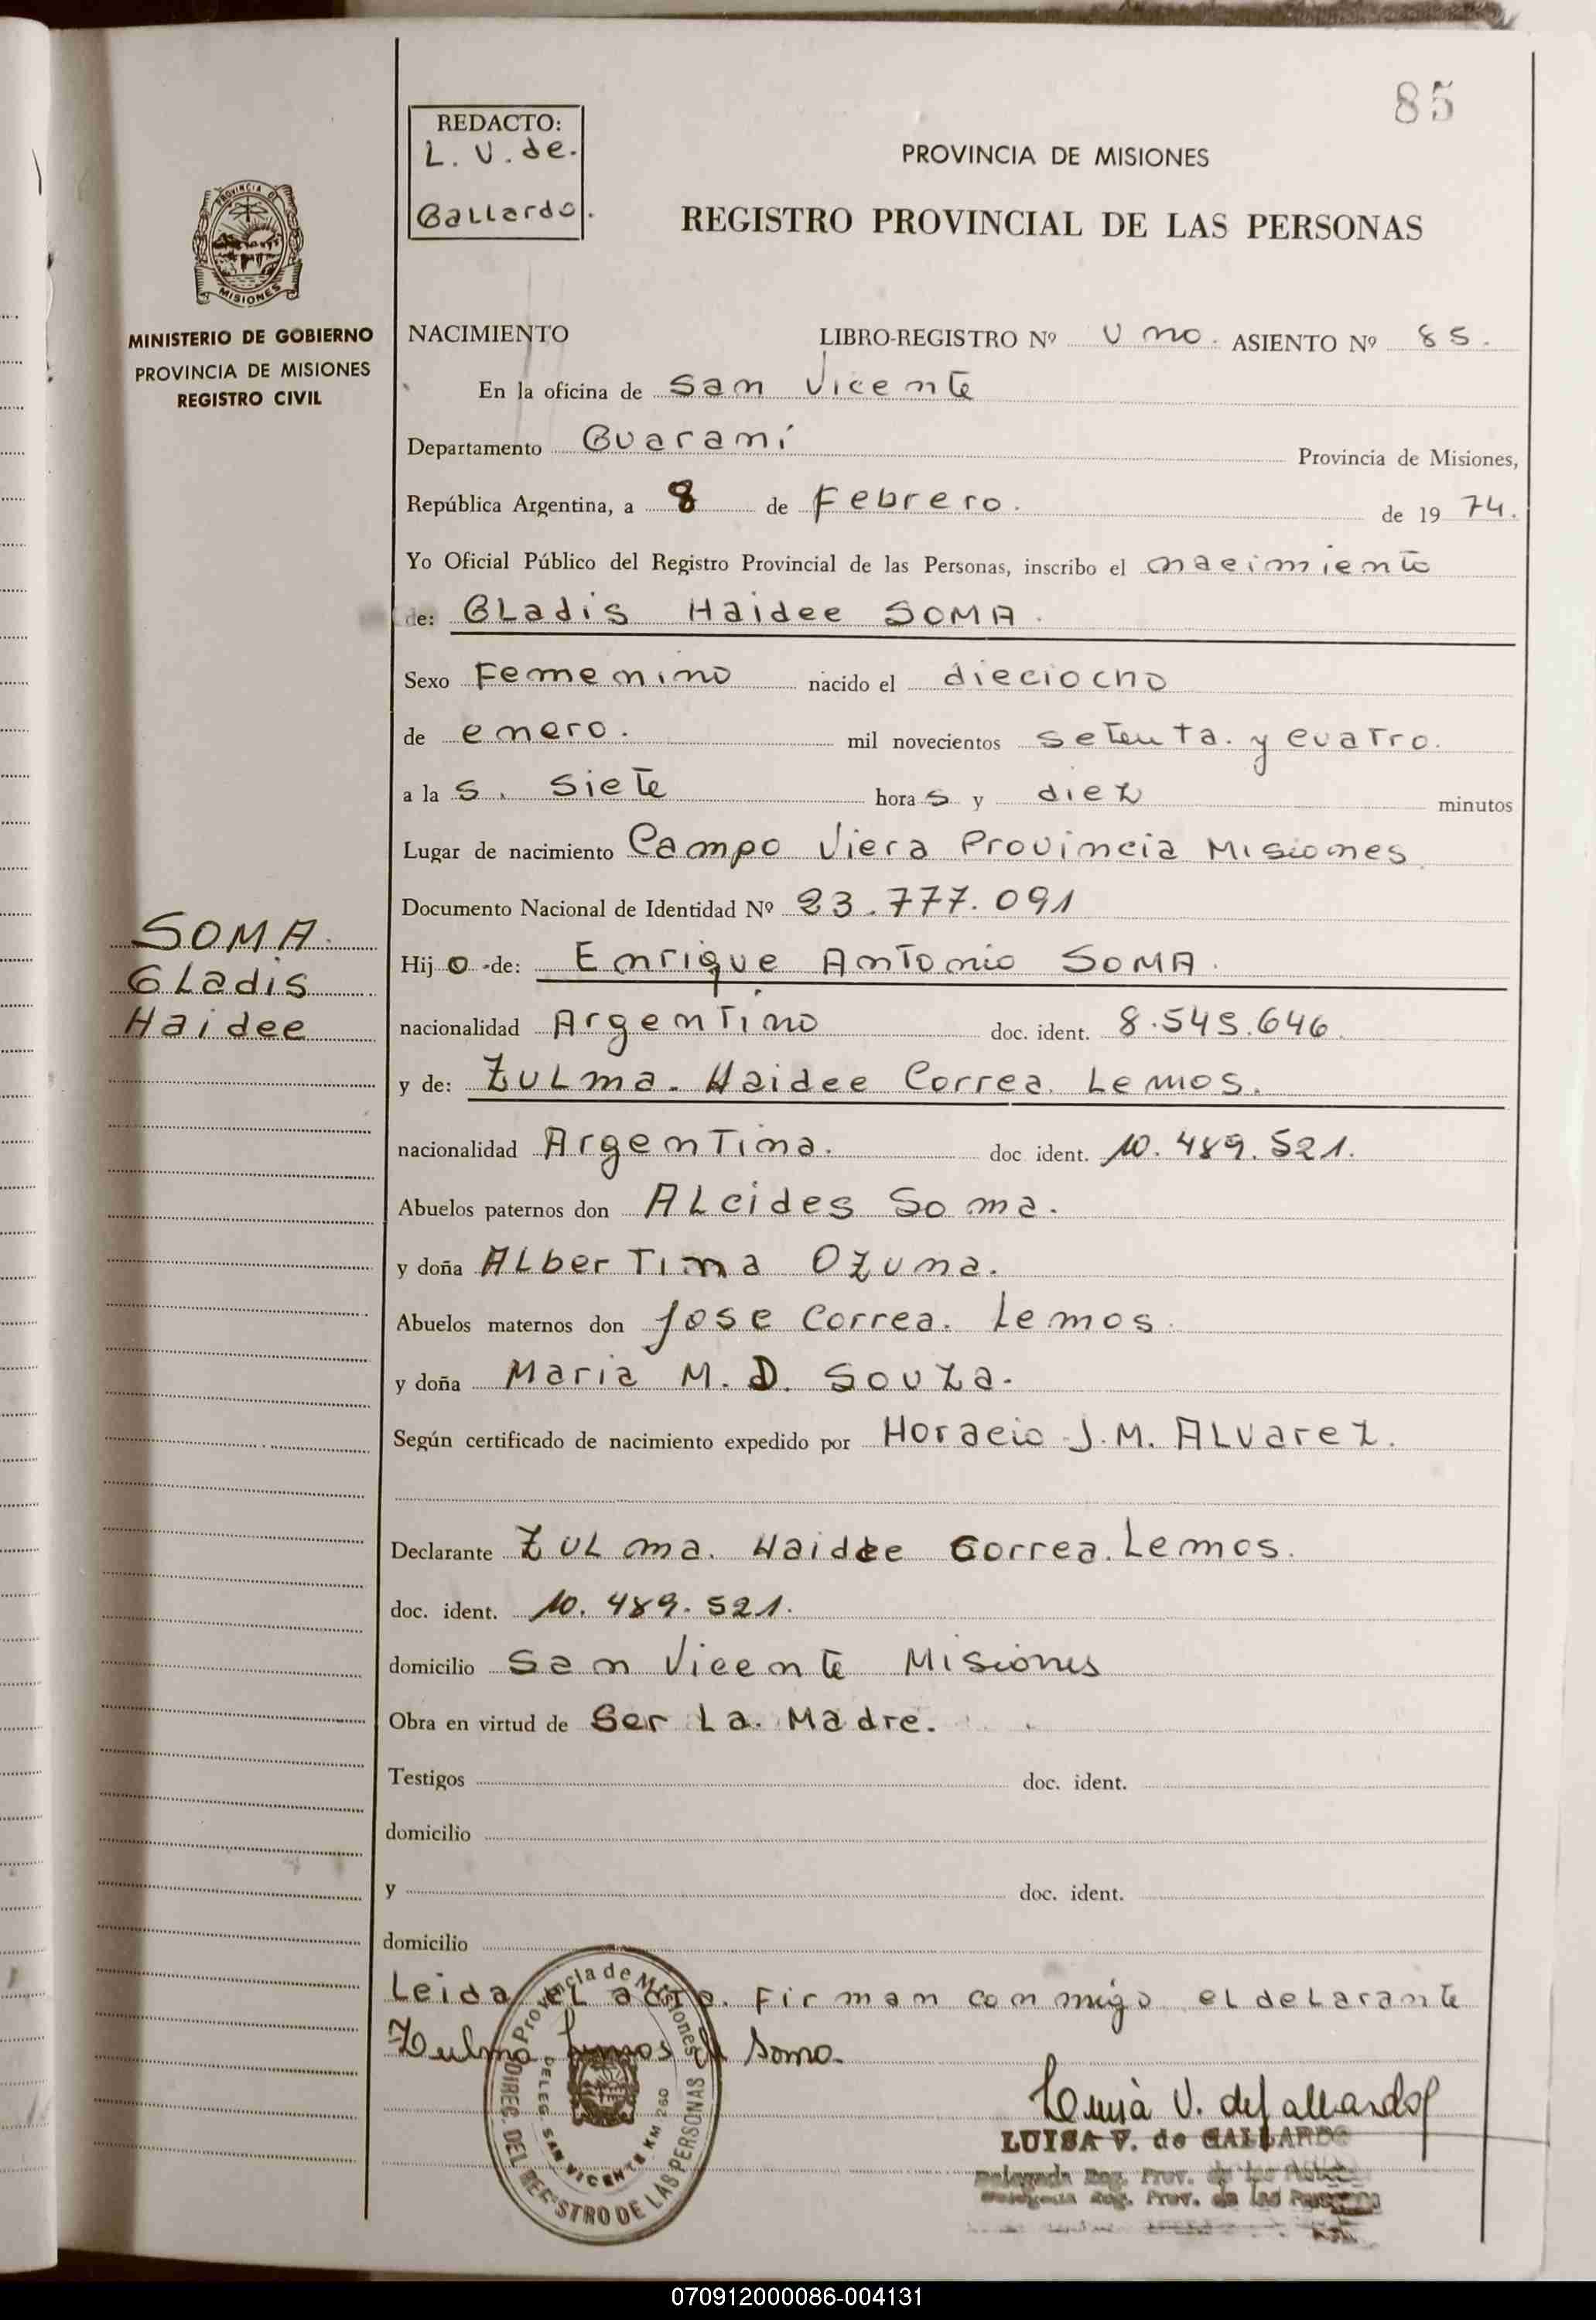 85
REDACTO:
L. V. de.
Gallardo.
PROVINCIA DE MISIONES
REGISTRO PROVINCIAL DE LAS PERSONAS
PROVINCIA DE
MISIONES
MINISTERIO DE GOBIERNO
PROVINCIA DE MISIONES
REGISTRO CIVIL
NACIMIENTO LIBRO-REGISTRO Nº Uno. ASIENTO Nº 85.
En la oficina de San Vicente
Departamento Guaraní Provincia de Misiones,
República Argentina, a 8 de Febrero. de 1974.
Yo Oficial Público del Registro Provincial de las Personas, inscribo el nacimiento
de: Gladis Haidee SOMA.
Sexo Femenino nacido el dieciocho
de enero. mil novecientos setenta. y cuatro.
a la s. siete horas y diez minutos
Lugar de nacimiento Campo Viera Provincia Misiones
Documento Nacional de Identidad Nº 23.777.091
SOMA.
Gladis
Haidee
Hijo de: Enrique Antonio SOMA.
nacionalidad Argentino doc. ident. 8.545.646.
y de: Zulma. Haidee Correa. Lemos.
nacionalidad Argentina. doc ident. 10.489.521.
Abuelos paternos don Alcides Soma.
y doña Albertina Ozuna.
Abuelos maternos don Jose Correa. Lemos.
y doña Maria M. D. Souza.
Según certificado de nacimiento expedido por Horacio J. M. Alvarez.
Declarante Zulma. Haidee Correa. Lemos.
doc. ident. 10.489.521.
domicilio San Vicente Misiones
Obra en virtud de Ser La. Madre.
Testigos doc. ident.
domicilio
y doc. ident.
domicilio
Leida el acta. Firman conmigo el delarante
Zulma Lemos de Soma.
Provincia de Misiones
DIREC. DEL REGISTRO DE LAS PERSONAS
DELEG. SAN VICENTE KM 260
Luisa V. de Gallardo
LUISA V. de GALLARDO
Delegada Reg. Prov. de las
Reg. Prov. de las
070912000086-004131